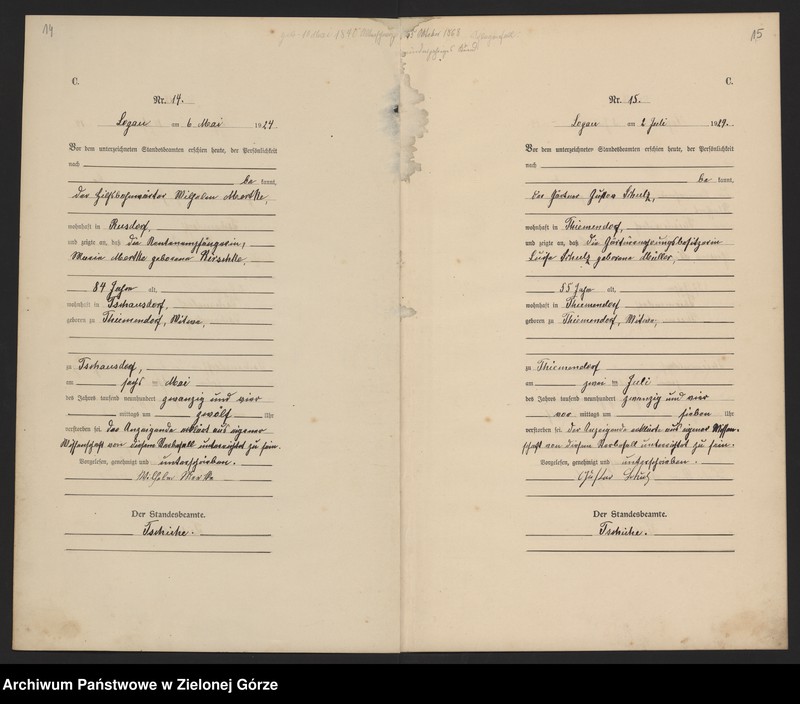 14
C.
Nr. 14.
Logau am 6 Mai 1924.
Vor dem unterzeichneten Standesbeamten erschien heute, der Persönlichkeit
nach
be kannt,
der Hilfsbahnwärter Wilhelm Martke,
wohnhaft in Rusdorf,
und zeigte an, daß die Rentenempfängerin,
Maria Martke geborene Kirschke,
84 Jahre alt,
wohnhaft in Tschausdorf,
geboren zu Thiemendorf, Witwe,
zu Tschausdorf,
am sechs ten Mai
des Jahres tausend neunhundert zwanzig und vier
mittags um zwölf Uhr
verstorben sei. Das Anzeigende erklärt aus eigener
Wissenschaft von diesem Sterbefall unterrichtet zu sein.
Vorgelesen, genehmigt und unterschrieben.
Wilhelm Martke
Der Standesbeamte.
Tschirke.
15
C.
Nr. 15.
Logau am 2 Juli 1924.
Vor dem unterzeichneten Standesbeamten erschien heute, der Persönlichkeit
nach
be kannt,
der Gärtner Gustav Schulz,
wohnhaft in Thiemendorf,
und zeigte an, daß die
Luise Schulz geborene Müller,
85 Jahre alt,
wohnhaft in Thiemendorf
geboren zu Thiemendorf, Witwe,
zu Thiemendorf
am zwei ten Juli
des Jahres tausend neunhundert zwanzig und vier
vor mittags um sieben Uhr
verstorben sei. Der Anzeigende erklärt aus eigener Wissen-
schaft von diesem Sterbefall unterrichtet zu sein.
Vorgelesen, genehmigt und unterschrieben.
Gustav Schulz
Der Standesbeamte.
Tschirke.
Archiwum Państwowe w Zielonej Górze